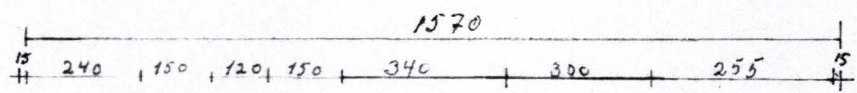 1570
15 240 150 120 150 340 300 255 15